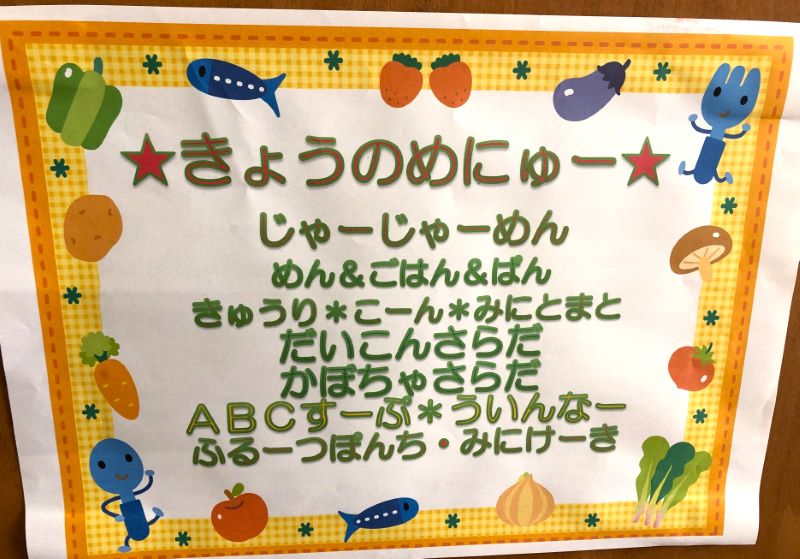 ★きょうのめにゅー★
じゃーじゃーめん
めん＆ごはん＆ぱん
きゅうり＊こーん＊みにとまと
だいこんさらだ
かぼちゃさらだ
ＡＢＣすーぷ＊ういんなー
ふるーつぽんち・みにけーき